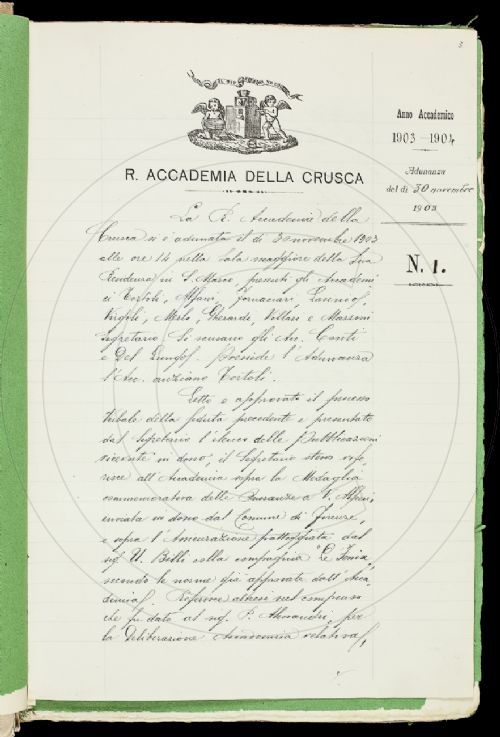 3
IL PIÙ BEL FIOR NE COGLIE
R. ACCADEMIA DELLA CRUSCA
Anno Accademico
1903-1904
Adunanza
del dì 30 novembre
1903
N. 1.
La R. Accademia della
Crusca si è adunata il dì 30 novembre 1903
alle ore 14 nella Sala maggiore della Sua
Residenza in S. Marco presenti gli Accademi
ci Tortoli, Alfani, Fornaciari,
Vingoli, Melo, Gherardi, Villari e Mazzoni
Segretario. Si scusano gli Acc. Conti
e Del Lungo. Presiede l'Adunanza
l'Acc. anziano Tortoli.
Letto e approvato il processo
verbale della seduta precedente e presentato
dal Segretario l'elenco delle Pubblicazioni
ricevute in dono, il Segretario stesso rife,
risce all'Accademia sopra la Medaglia
commemorativa delle Onoranze a V. Alfieri,
inviata in dono dal Comune di Firenze,
e sopra l'Assicurazione pattuita dal
sig. U. colla compagnia "La Fenice"
secondo le norme già approvate dall'Acca
demia. Riferisce altresì sul compenso
che fu dato al sig. P. Alessandri, per
la Deliberazione Accademica relativa,